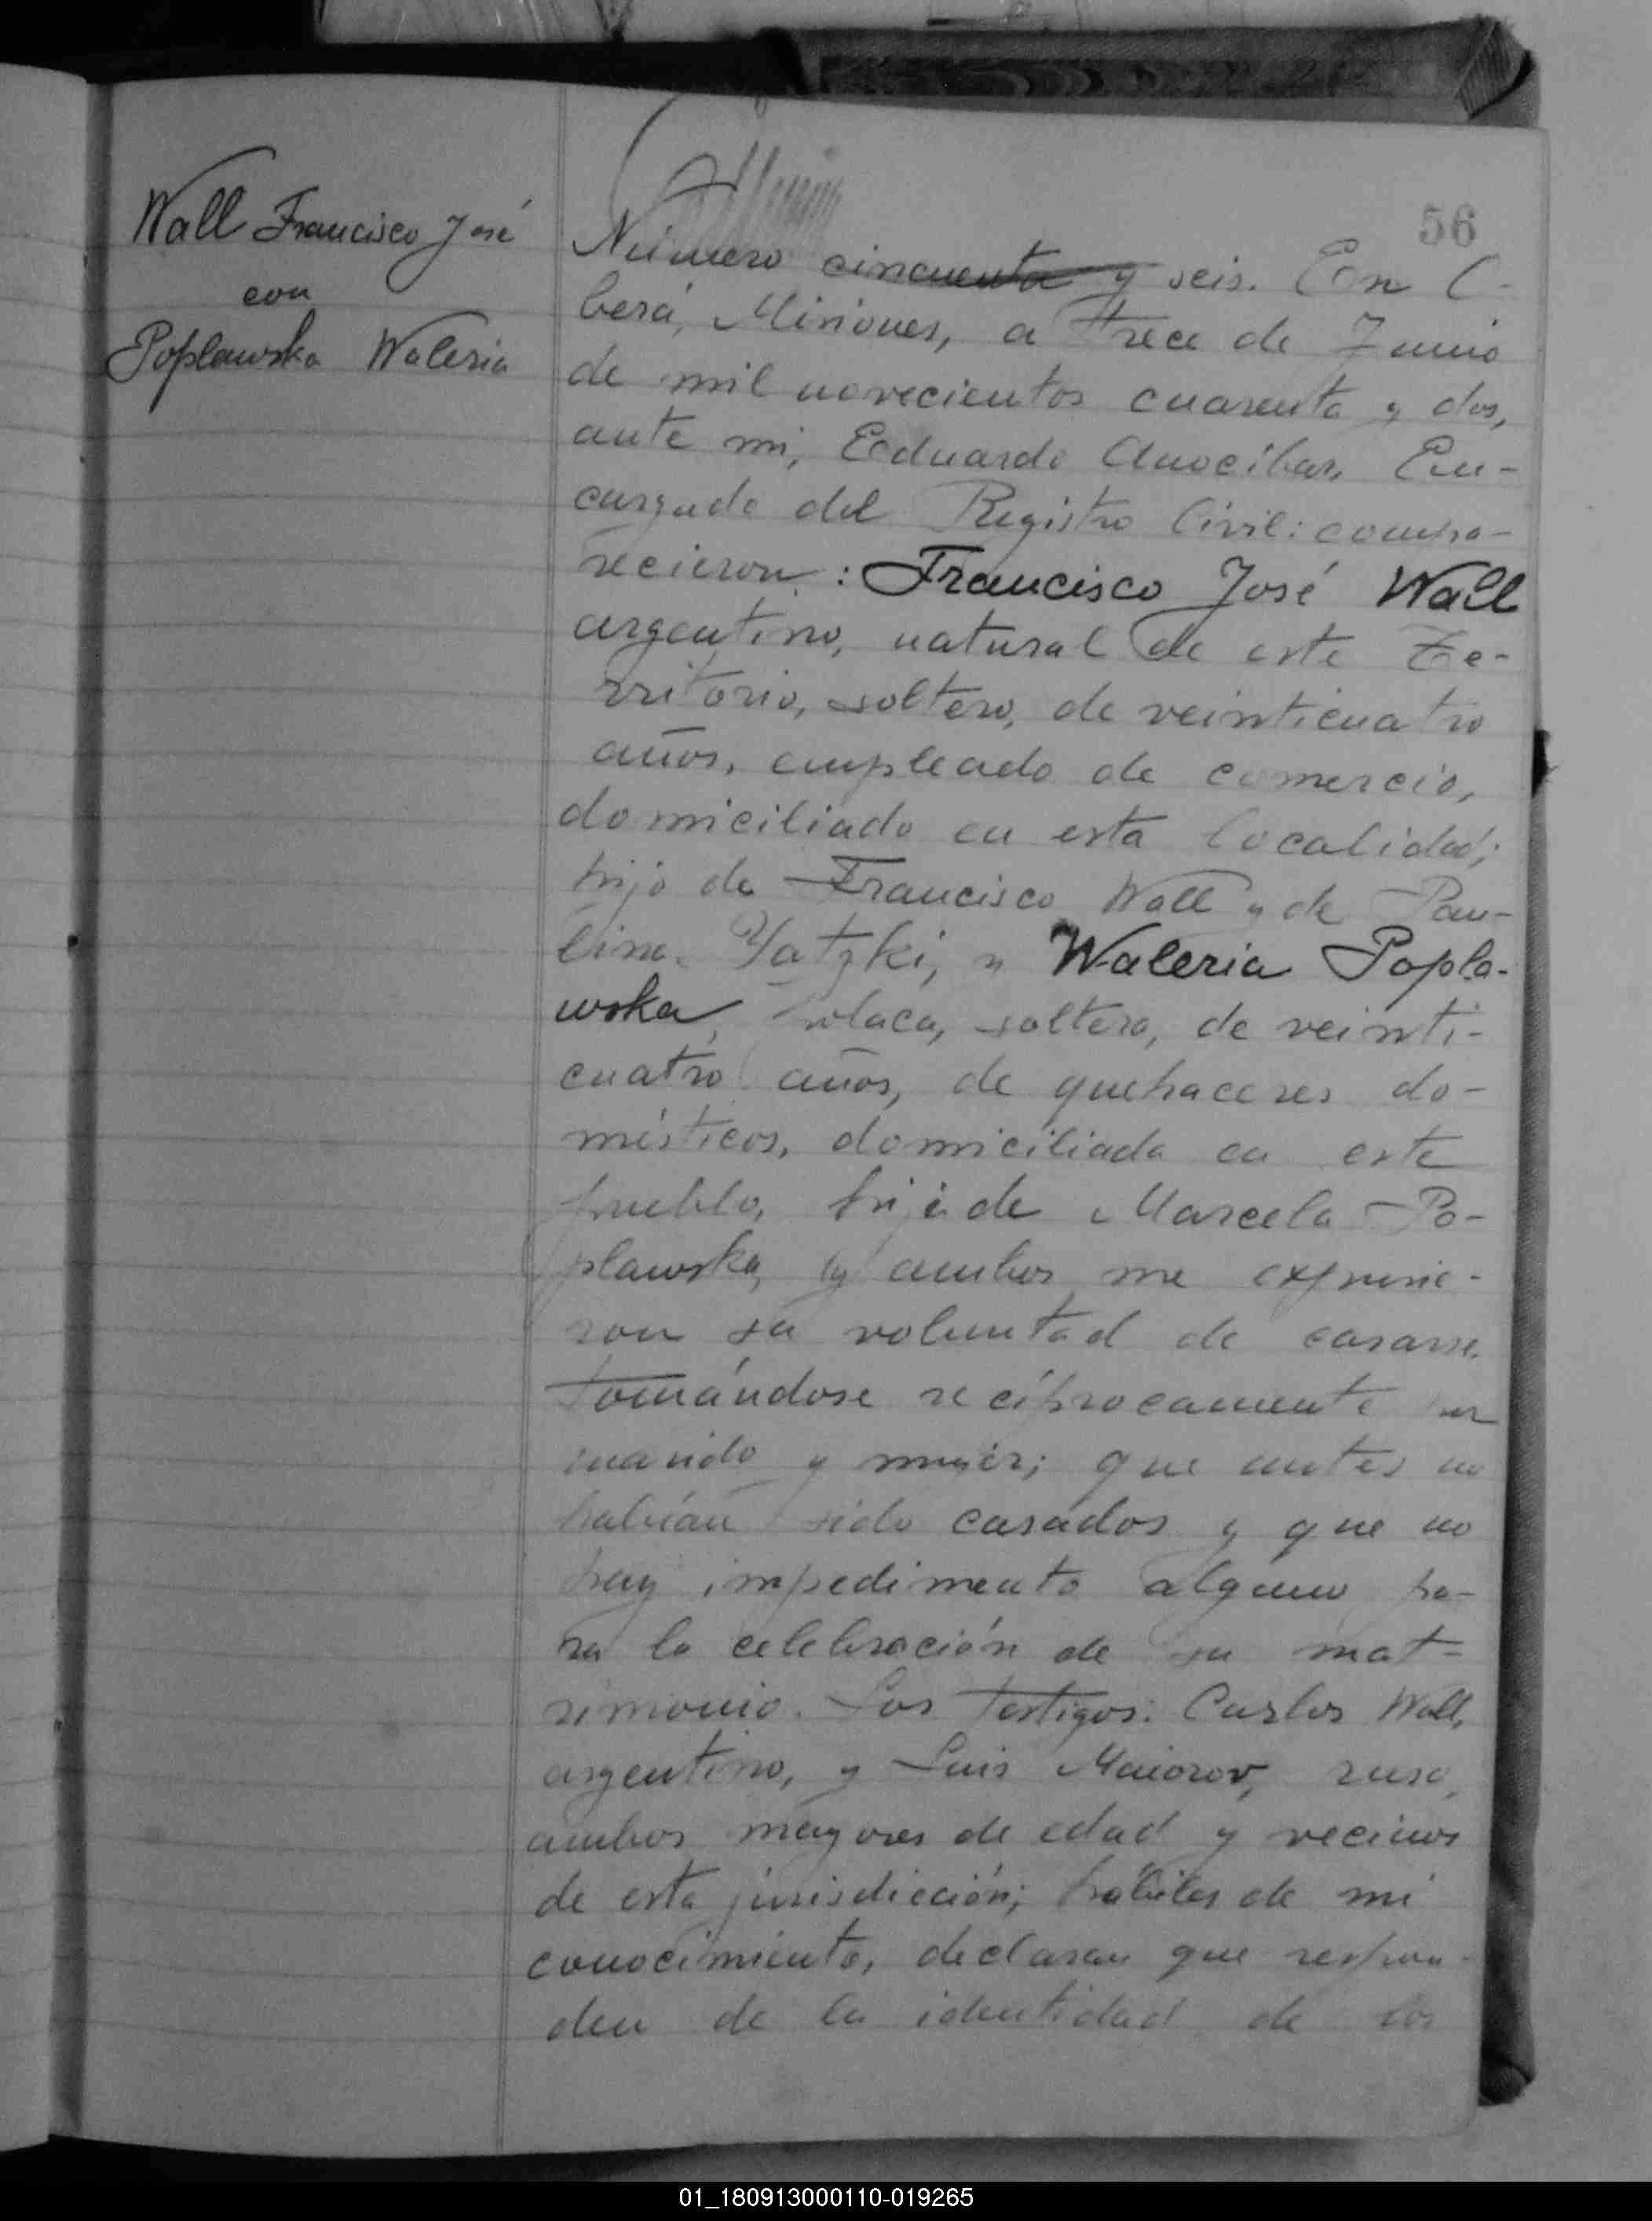 Wall Francisco José
con
Poplawska Waleria
56
Número cincuenta y seis. En O-
berá, Misiones, a trece de Junio
de mil novecientos cuarenta y dos,
ante mi, Eduardo Anocibar, En-
cargado del Registro Civil: compa-
recieron: Francisco José Wall
argentino, natural de este Te-
rritorio, soltero, de veinticuatro
años, empleado de comercio,
domiciliado en esta localidad;
hijo de Francisco Wall y de Pau-
lina Yatzki, y Waleria Popla-
wska, polaca, soltera, de veinti-
cuatro años, de quehaceres do-
mésticos, domiciliada en este
pueblo, hija de Marcela Po-
plawska, y ambos me expusie-
ron su voluntad de casarse
tomándose recíprocamente por
marido y mujer; que antes no
habían sido casados y que no
hay impedimento alguno pa-
ra la celebración de su mat-
rimonio. Los testigos: Carlos Wall,
argentino, y Luis Maiorov, ruso,
ambos mayores de edad y vecinos
de esta jurisdicción; hábiles de mi
conocimiento, declaran que respon-
den de la identidad de los
01_180913000110-019265